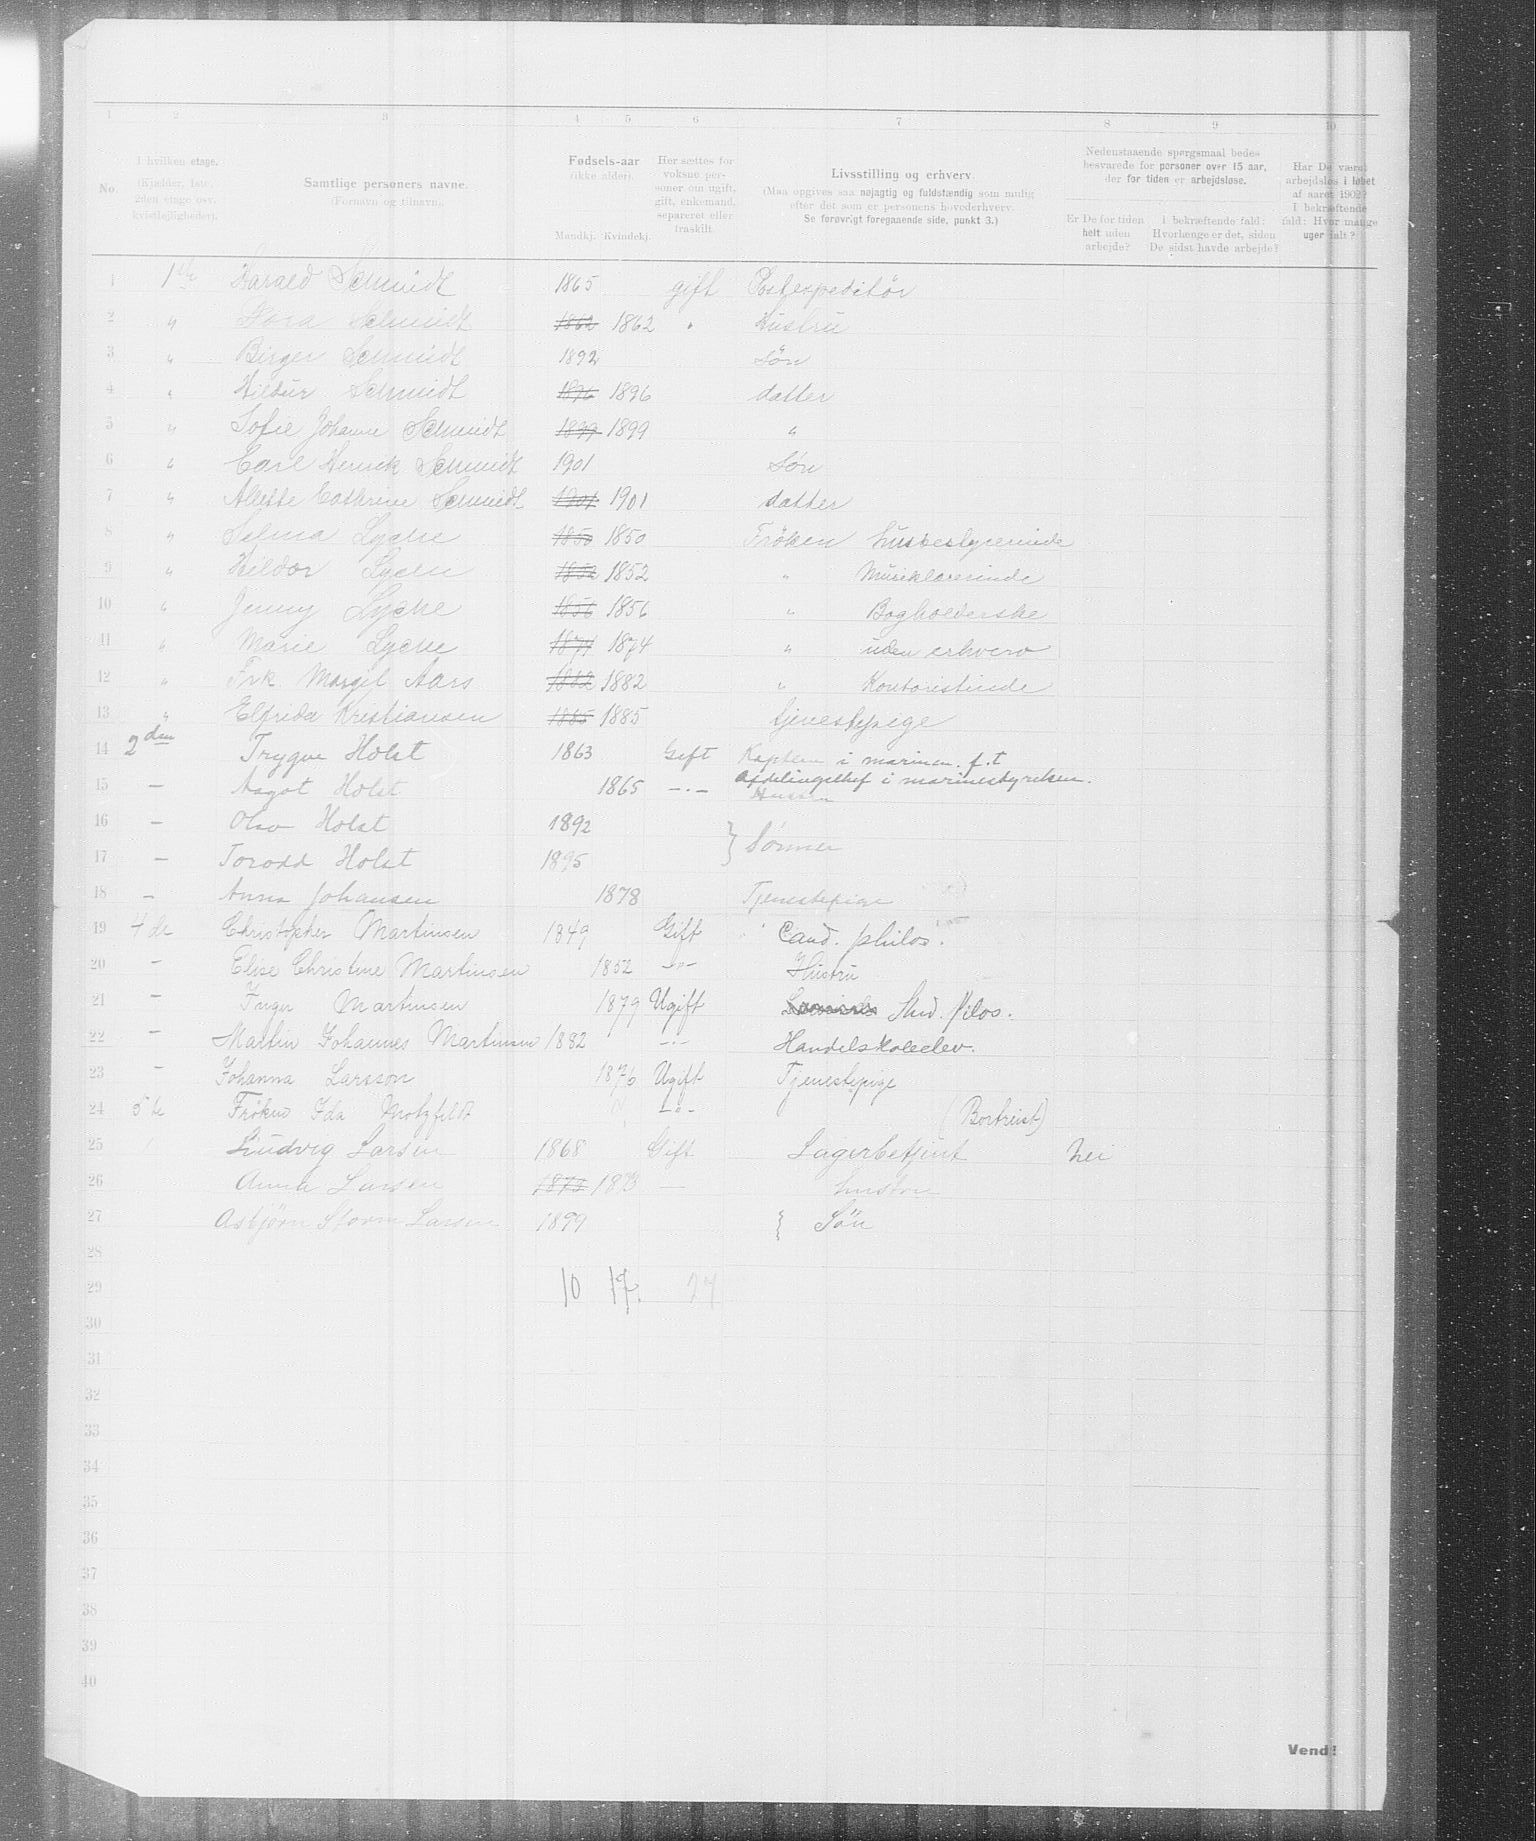 1 2 3 4 5 6 7 8 9 10
No.
I hvilken etage.
(Kjælder, 1ste, 2den etage osv. kvistleiligheder).
Samtlige personers navne.
(Fornavn og tilnavn).
Fødsels-aar
(ikke alder).
Mandkj. Kvindekj.
Her sættes for voksne personer om ugift, gift, enkemand, separeret eller fraskilt.
Livsstilling og erhverv.
(Maa opgives saa nøjagtig og fuldstændig som mulig efter det som er personens hovederhverv.
Se forøvrigt foregaaende side, punkt 3.)
Nedenstaaende spørgsmaal bedes besvarede for personer over 15 aar, der for tiden er arbejdsløse.
Er De for tiden helt uden arbejde?
I bekræftende fald: Hvorlænge er det, siden De sidst havde arbejde?
Har De været arbejdsløs i løbet af aaret 1902? I bekræftende fald: Hvor mange uger ialt?
1 1ste Harald Schmidt 1865 gift Postexpeditör
2 " Schmidt 1862 1862 " Hustru
3 " Birger Schmidt 1892 Sön
4 " Hildur Schmidt 1896 1896 datter
5 " Sofie Johanne Schmidt 1899 1899 "
6 " Carl Henrik Schmidt 1901 Sön
7 " Alette Cathrine Schmidt 1901 1901 datter
8 " Selma Lyche 1850 1850 Fröken husbestyrerinde
9 " Hildor Lyche 1852 1852 " Musiklærerinde
10 " Jenny Lyche 1856 1856 " Bogholderske
11 " Marie Lyche 1874 1874 " uden erhverv
12 " Frk Margit Aars 1882 1882 " Kontoristinde
13 " Elfrida Kristiansen 1885 1885 tjenestepige
14 2den Trygve Holst 1863 Gift Kaptein i marinen. f.t
afdelingschef i marinestyrelsen.
15 — Aagot Holst 1865 —"—
16 — Olav Holst 1892 } Sønner
17 — Torodd Holst 1895
18 — Anna Johansen 1878 Tjenestepige
19 4de Christopher Martinsen 1849 Gift Cand. philos.
20 — Elise Christine Martinsen 1852 —"— Hustru
21 — Inger Martinsen 1879 Ugift Stud. filos.
22 — Martin Johannes Martinsen 1882 —"— Handelskoleelev.
23 — Johanna Larsson 1876 Ugift Tjenestepige
24 5te Frøken Ida Motzfeldt —"— (Bortreist)
25 Ludvig Larsen 1868 Gift Lagerbetjent nei
26 Anna Larsen 1873 1873 — hustru
27 Asbjørn Storm Larsen 1899 } Sön
28
29 10 17.
30
31
32
33
34
35
36
37
38
39
40
Vend!